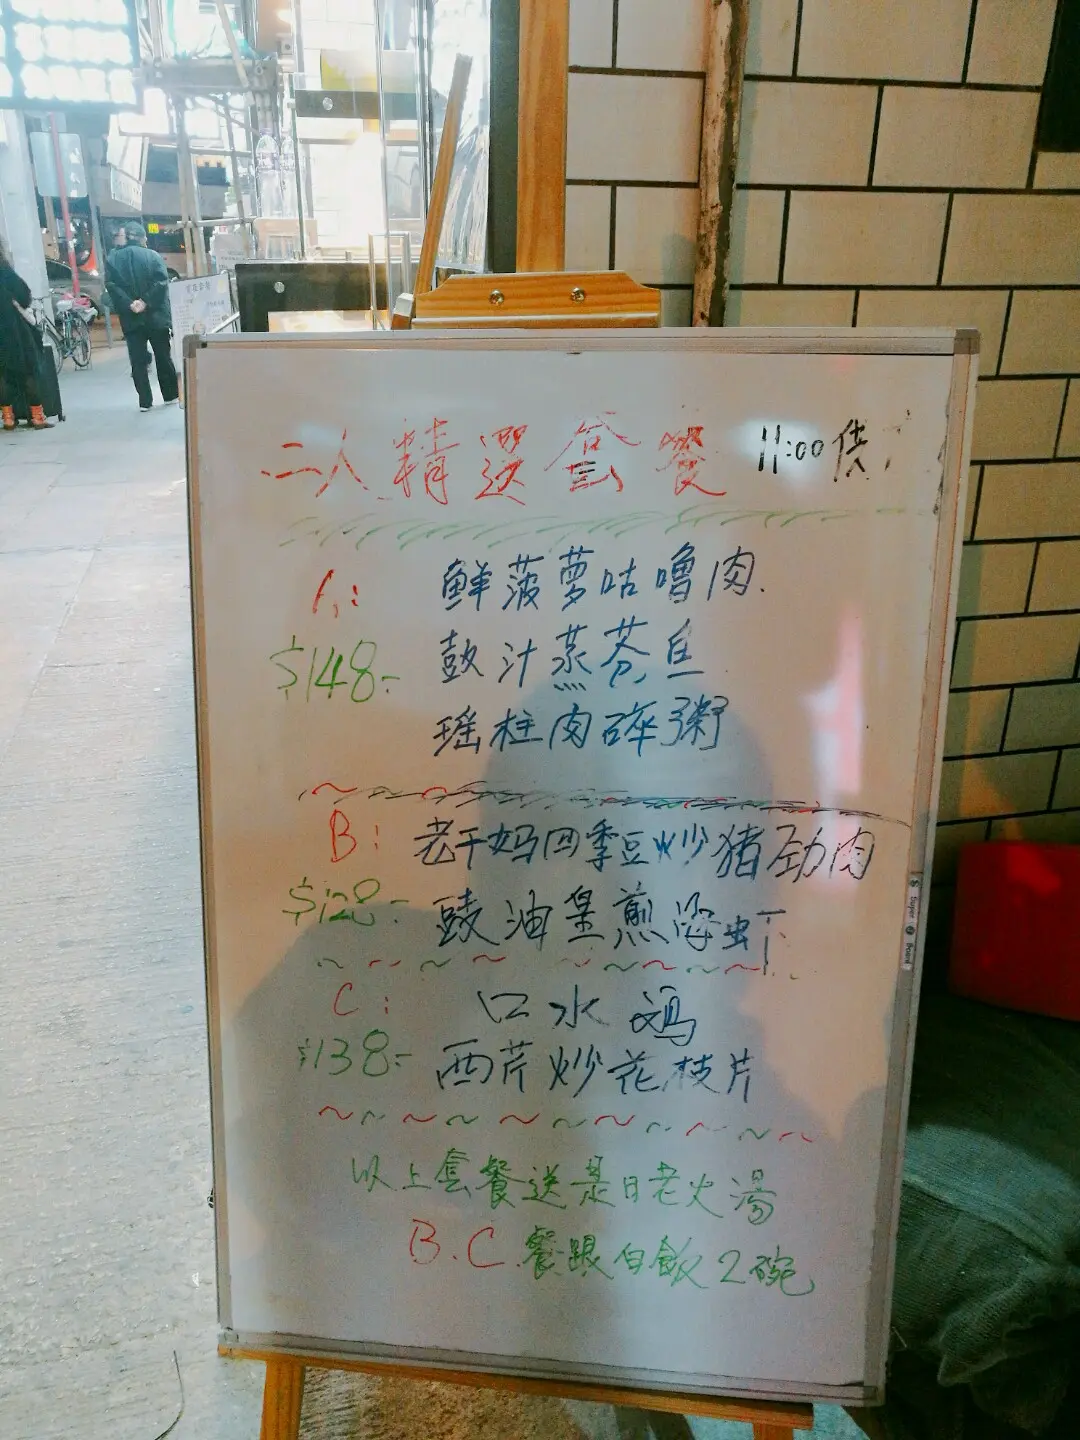 二人精選套餐 11:00供
A:
鲜菠萝咕嚕肉.
$148-
鼓汁蒸芥鱼
瑶柱肉碎粥
B: 老干妈四季豆炒豬劲肉
$128-
豉油皇煎海虾
C: 口水鸡
$138-
西芹炒花枝片
以上套餐送是日老火湯
B.C.餐跟白飯2碗